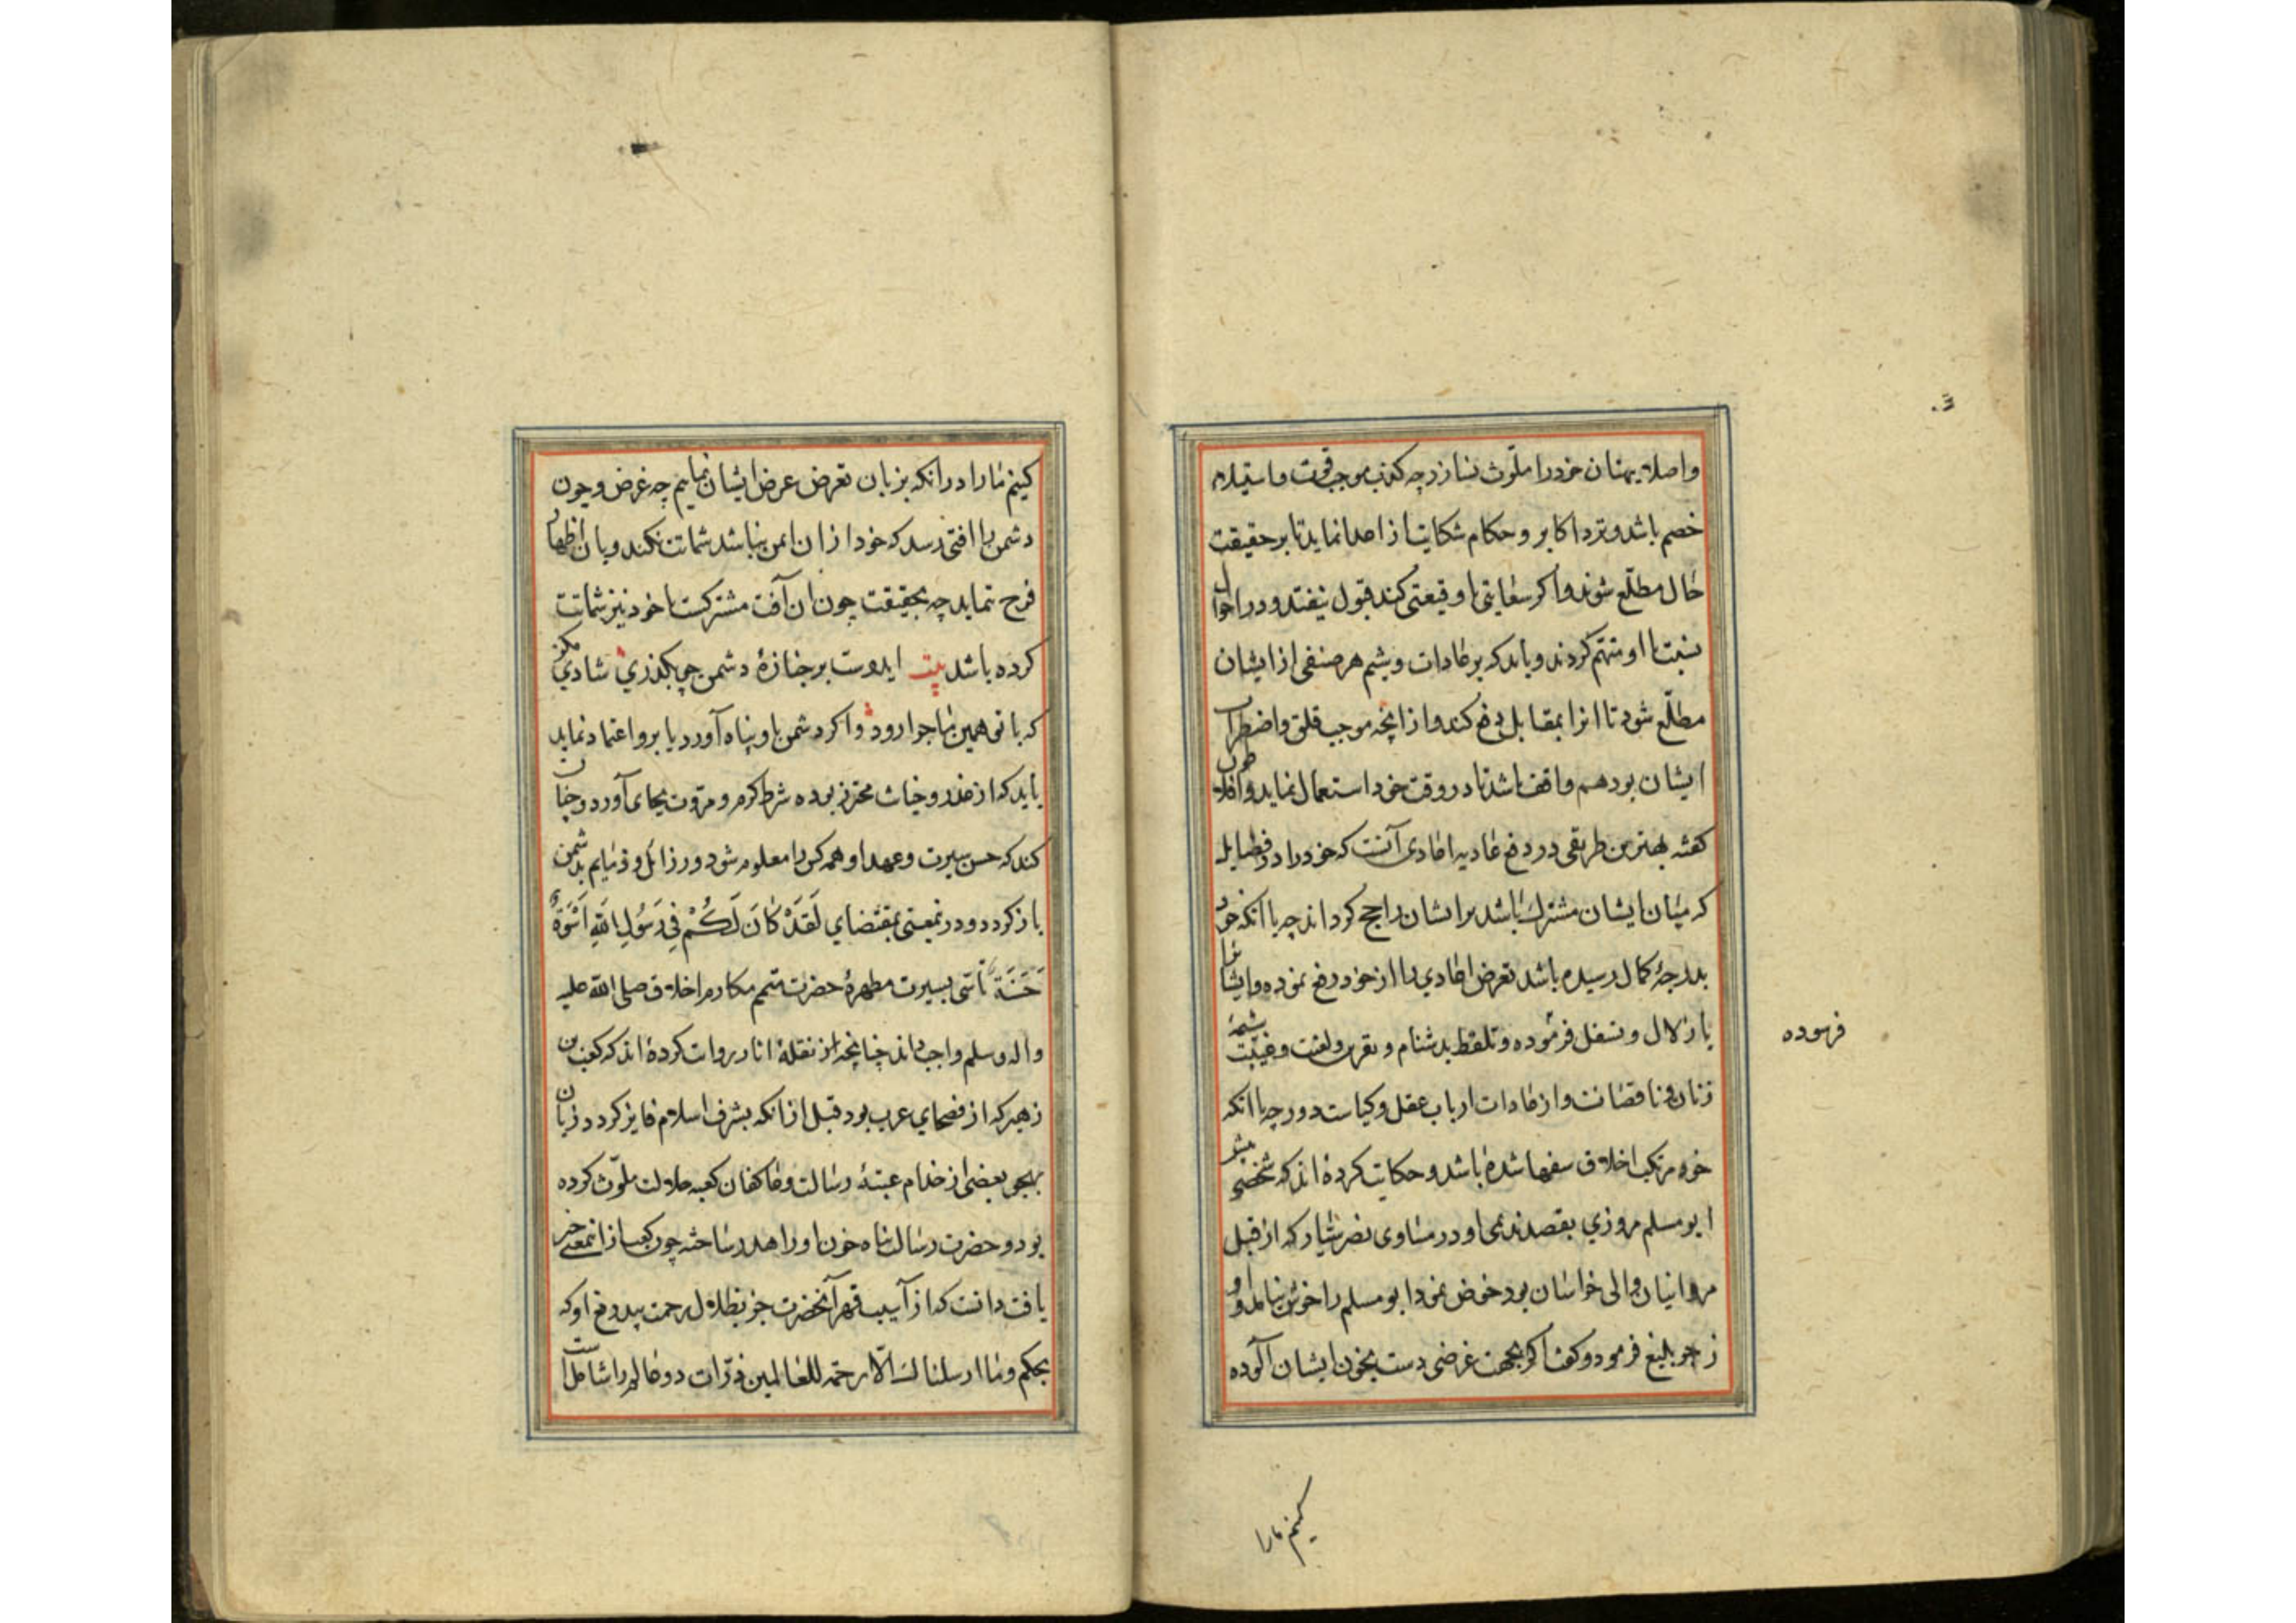 و اصلا ببهتان خود را ملوّث نسازد چه کذب موجب قوّت و استیلاء
خصم باشد و نزد اکابر و حکام شکایت از اعدا نماید تا بر حقیقت
حال مطلّع شوند و اگر سعایتی یا وقیعتی کند قبول نیفتد و در احوال
نسبت با او متهم کردند و باید که بر عادات و شیم هر صنفی از ایشان
مطلّع شود تا انرا بمقابل دفع کند و از انچه موجب قلق و اضطراب
ایشان بود هم واقف باشد تا در وقت خود استعمال نماید و افلاطون
کفته بهترین طریقی در دفع اعادی آنست که خود را در فضایل
که میان ایشان مشترک باشد بر ایشان راجح کرداند چه با انکه خود
بدرجهٔ کمال رسیده باشد تعرض اعادی را از خود دفع نموده و ایشان
با ذلال و تسفل فرموده و تلفظ بدشنام و نفرین و لعنت و غیبت شیمهٔ
زنان و ناقصانست و از عادات ارباب عقل و کیاست دور چه با انکه
خود مرتکب اخلاق سفها شده باشد و حکایت کردهٔ اند که شخصی پیش
ابو مسلم مروزی بقصد ندیمی او در مساوی نصر سیار که از قبل
مروانیان والی خراسان بود خوض نمود ابو مسلم را خوش نیامد و او را
زجر بلیغ فرمود و کفت اکر بجهت غرضی دست بخون ایشان آلوده
فرسوده
کنیم ما را
کنیم ما را در انکه بزبان تعرض عرض ایشان نماییم چه غرض و چون
دشمن را افتی رسد که خود از ان ایمن نباشد شماتت نکند و بان اظهار
فرح ننماید چه بحقیقت چون ان آفت مشترکست با خود نیز شماتت
کرده باشد بیت ایدوست بر جنازهٔ دشمن چو بکذری شادی مکن
که با تو همین ماجرا رود و اکر دشمن باو پناه آورد یا برو اعتماد نماید
باید که از غدر و خیانت محترز بوده شرط کرم و مروّت بجای آورد و چنان
کند که حسن سیرت و عهد او همه کس را معلوم شود و رذائل و ذمایم بدشمن
باز کردد و درینمعنی بمقتضای لَقَدْ کَانَ لَکُمْ فِی رَسُولِ اللهِ اُسْوَةٌ
حَسَنَةٌ تأسّی بسیرت مطهرهٔ حضرت متمم مکارم اخلاق صلی الله علیه
و اله و سلم واجب داند چنانچه از نقلهٔ اثار روایت کردهٔ اند که کعب بن
زهیر که از فصحای عرب بود قبل از انکه بشرف اسلام فایز کردد زبان
بهجو بعضی از خدام عتبهٔ رسالت و عاکفان کعبه جلالت ملوّث کرده
بود و حضرت رسالت پناه خون او را هدر ساخته چون کعب از انمعنی خبر
یافت دانست که از آسیب قهر آنحضرت جز بظلال رحمت بیدریغ او که
بحکم و ما ارسلناک الّا رحمة للعالمین ذرّات دو عالم را شاملست